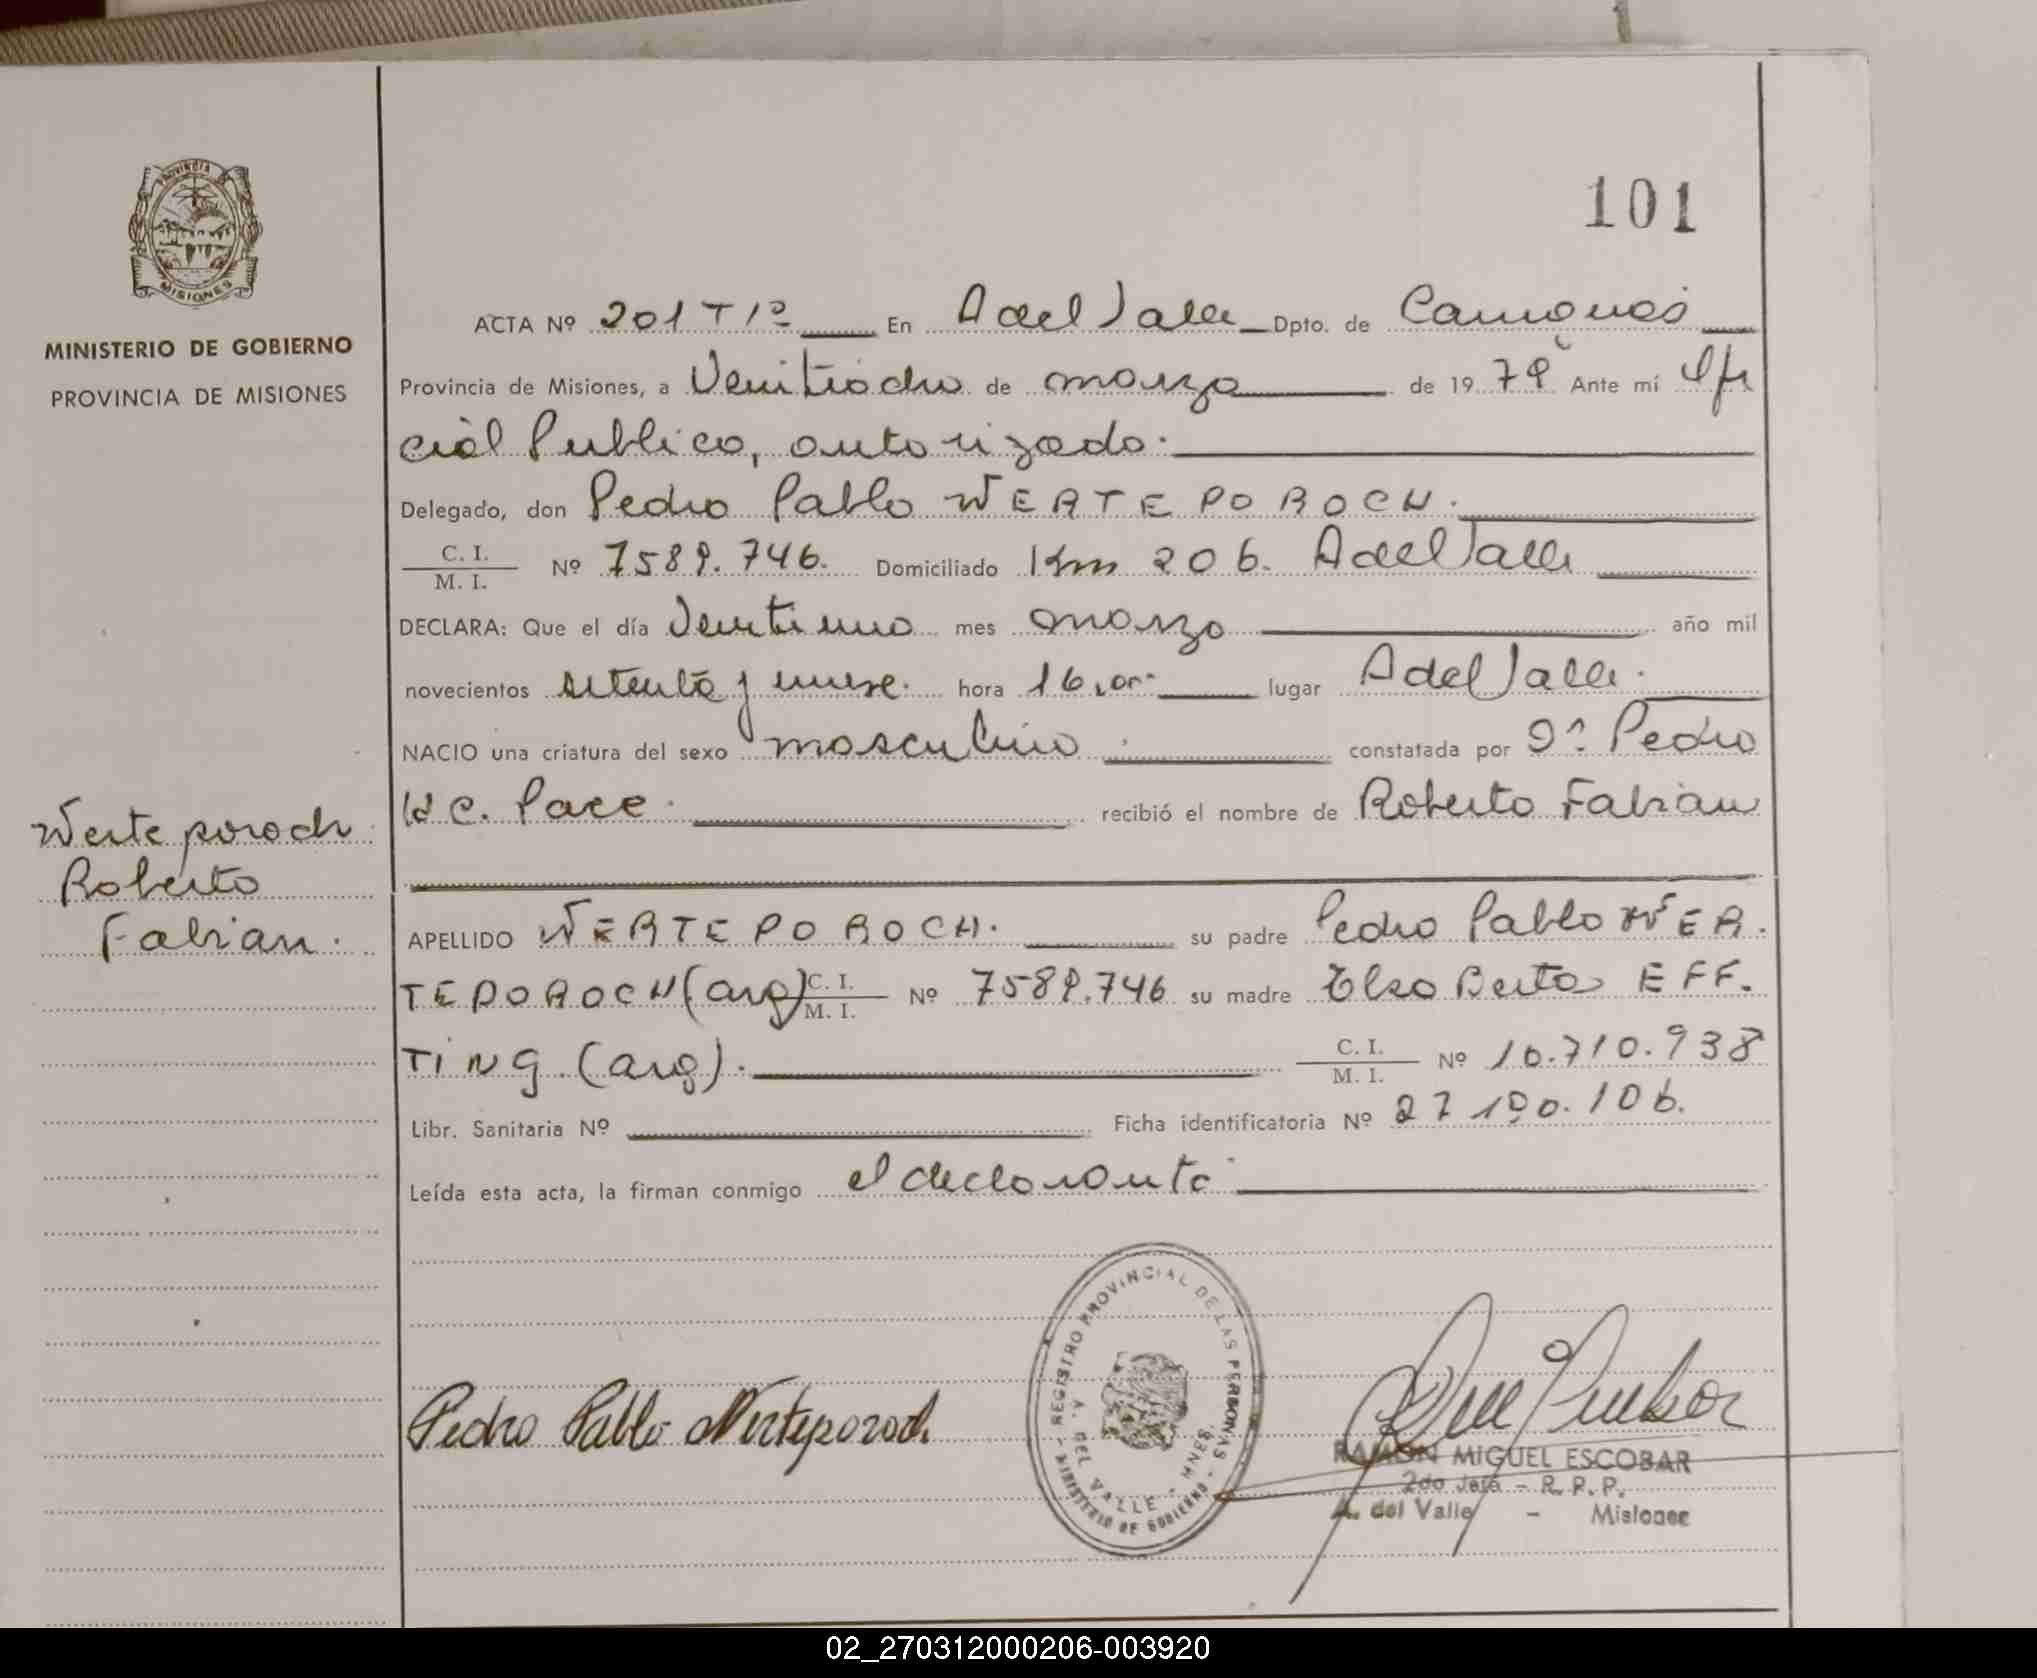 101
PROVINCIA
MISIONES
MINISTERIO DE GOBIERNO
PROVINCIA DE MISIONES
ACTA Nº 201 T 1º En A del Valle Dpto. de Cainguas
Provincia de Misiones, a Veintiocho de marzo de 1979 Ante mí Ofi
cial Publico, autorizado.
Delegado, don Pedro Pablo WERTEPOROCH.
C. I. / M. I. Nº 7589.746. Domiciliado Km 206. A del Valle
DECLARA: Que el día Veintiuno mes marzo año mil
novecientos setenta y nueve. hora 16,00 lugar A del Valle.
NACIO una criatura del sexo masculino. constatada por Dr. Pedro
C. Pace. recibió el nombre de Roberto Fabian
Werteporoch
Roberto
Fabian.
APELLIDO WERTEPOROCH. su padre Pedro Pablo WER.
TEPOROCH (arg) C. I. / M. I. Nº 7589.746 su madre Elsa Berta EFF.
TING. (arg). C. I. / M. I. Nº 10.710.938
Libr. Sanitaria Nº Ficha identificatoria Nº 27.190.106.
Leída esta acta, la firman conmigo el declarante
Pedro Pablo Werteporoch
REGISTRO PROVINCIAL DE LAS PERSONAS - MINISTERIO DE GOBIERNO -
A. DEL VALLE - MNES.
RAMON MIGUEL ESCOBAR
2do Jefe - R. P. P.
A. del Valle - Misiones
02_270312000206-003920